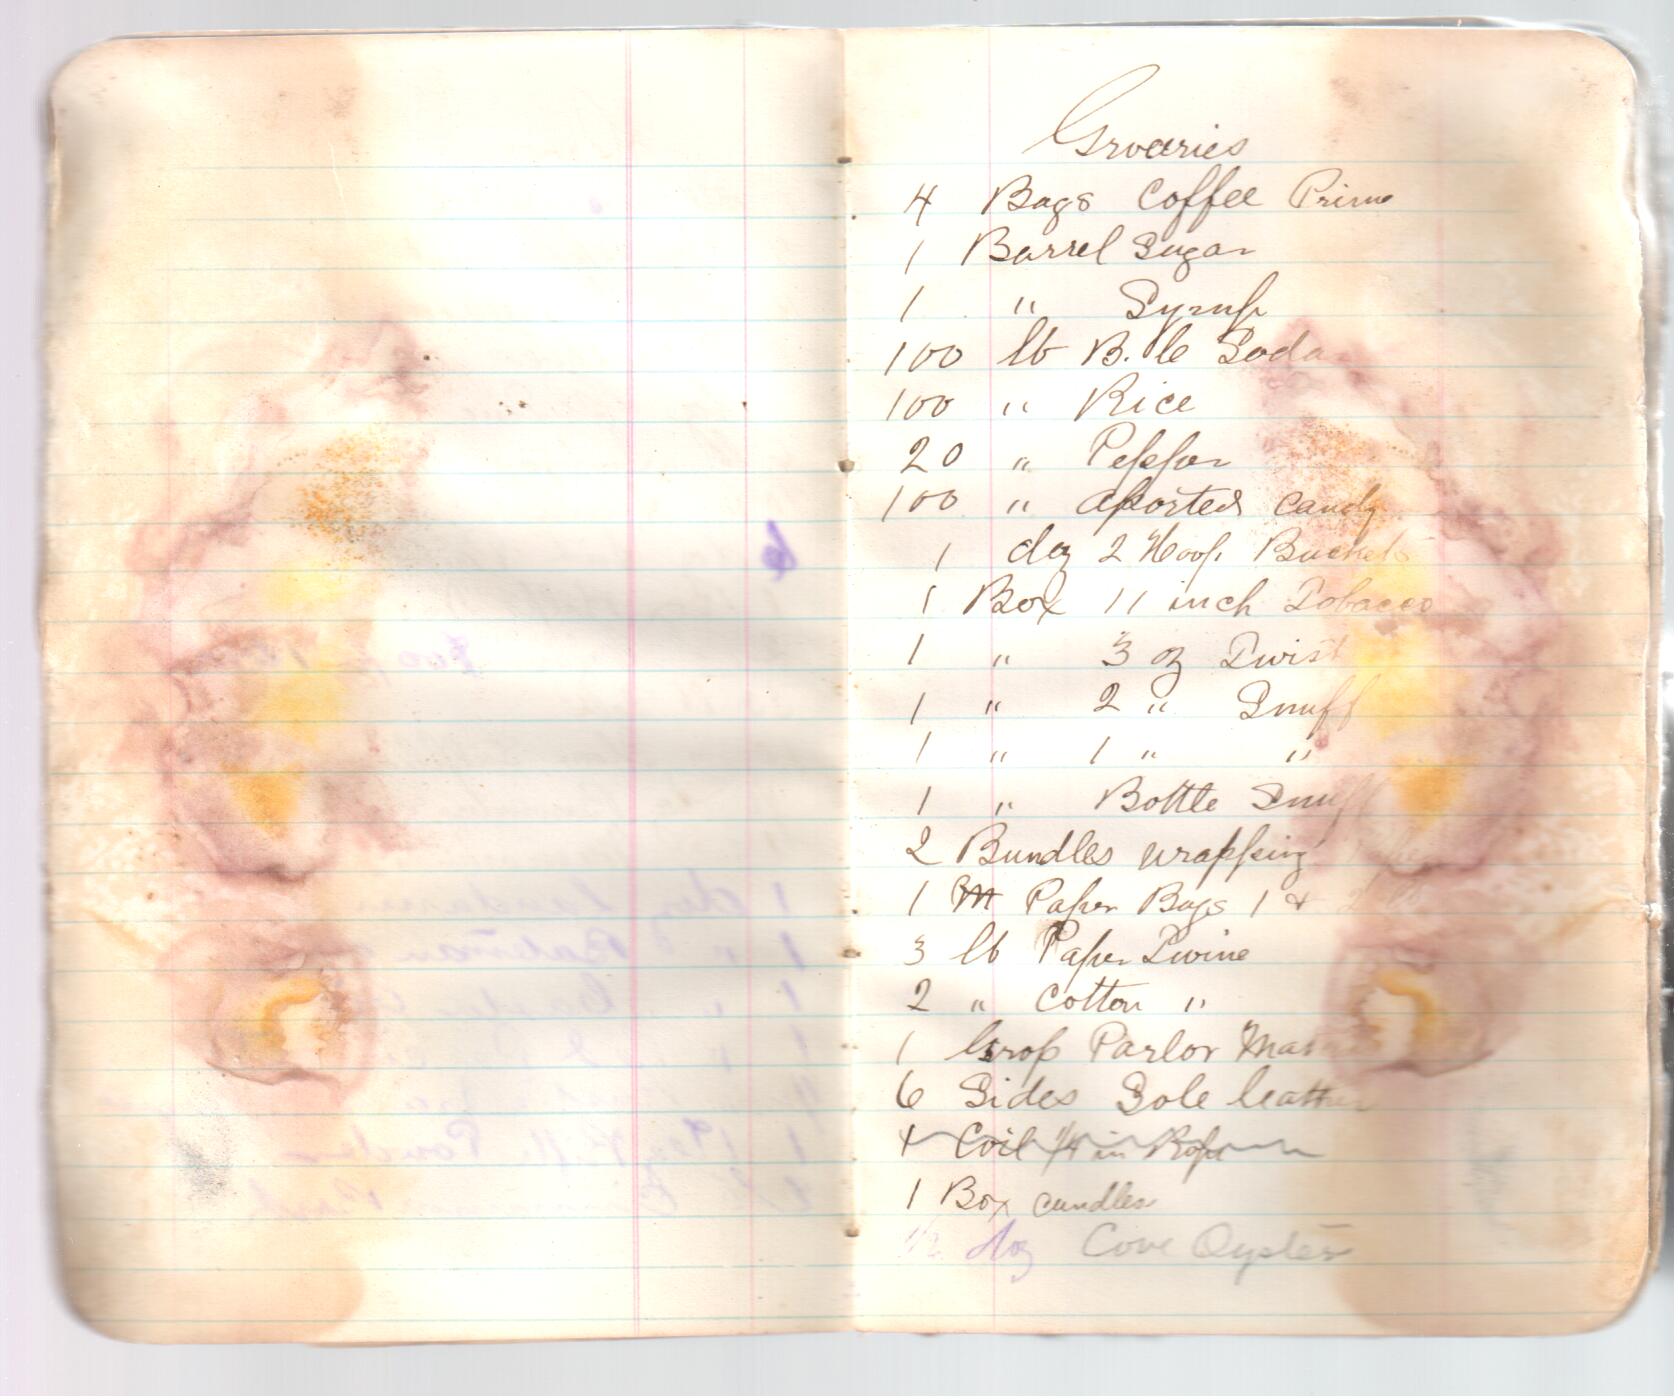 Groceries
4 Bags Coffee Prime
1 Barrel Sugar
1 " Syrup
100 lb B. Soda
100 " Rice
20 " Pepper
100 " assorted candy
1 doz 2 Hoop Buckets
1 Box 11 inch Tobacco
1 " 3 oz Twist
1 " 2 " Snuff
1 " 1 " "
1 " Bottle Snuff
2 Bundles wrapping
1 M Paper Bags 1 & 2 lb
3 lb Paper Twine
2 " Cotton "
1 Gross Parlor
6 Sides Sole leather
1 Coil in Rope
1 Box candles
1/2 doz Cove Oysters